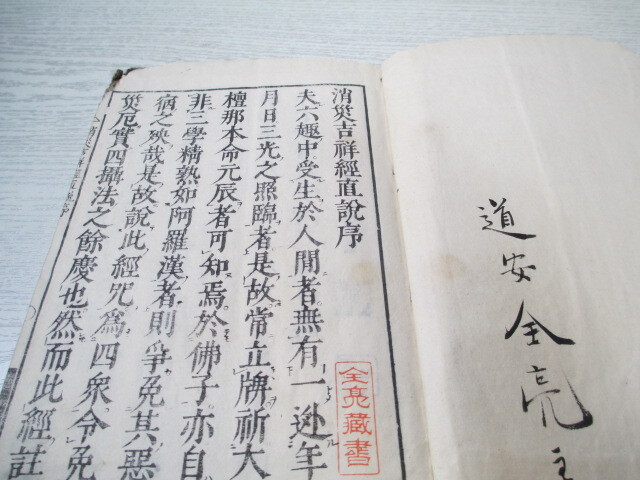 道安全亮主
消災吉祥經直說序
夫六趣中受生於人間者無有一逊年
月日三光之照臨者是故常立牌祈大
檀那本命元辰者可知焉於佛子亦自
非三學精熟如阿羅漢者則爭免其惡
宿之殃哉是故說此經咒爲四衆令免
災厄實四攝法之餘慶也然而此經註
全亮藏書